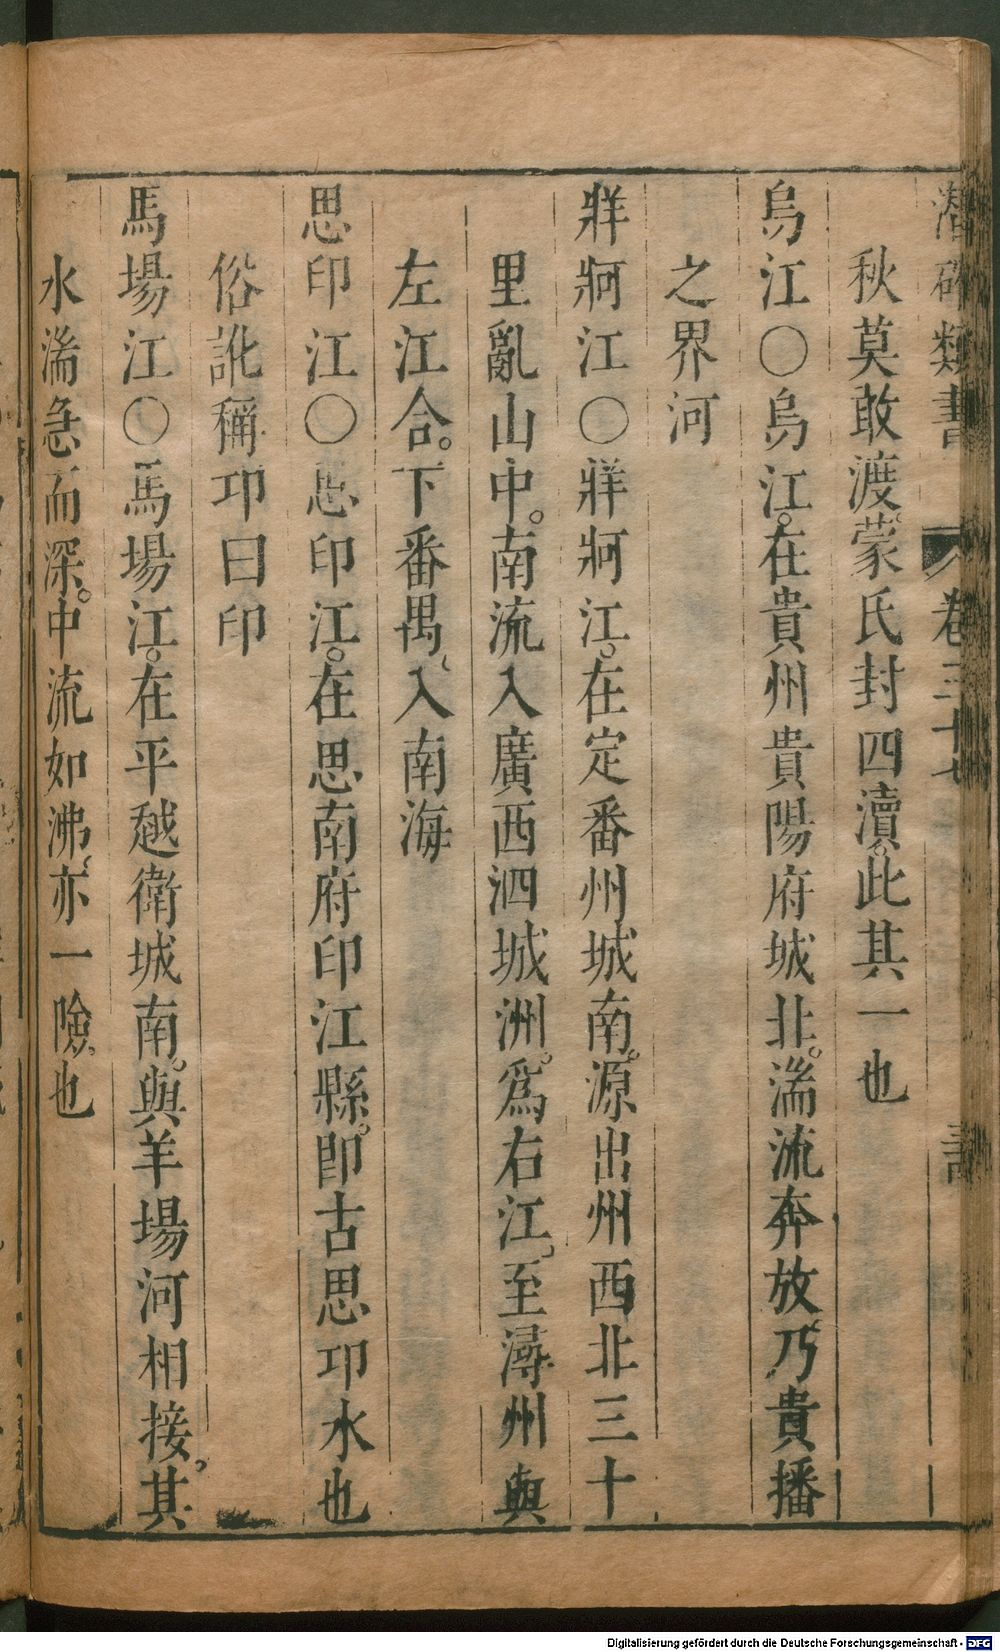 潛確類書 卷三十七
秋莫敢渡蒙氏封四瀆。此其一也
烏江〇烏江。在貴州貴陽府城北。湍流奔放、乃貴播
之界河
牂牁江〇牂牁江。在定番州城南。源出州西北三十
里亂山中。南流入廣西泗城洲。爲右江。至潯州與
左江合。下番禺、入南海
思印江〇思印江。在思南府印江縣。卽古思卭水也
俗訛稱卭曰印
馬場江〇馬場江。在平越衛城南。與羊場河相接。其
水湍急而深。中流如沸、亦一險也
Digitalisierung gefördert durch die Deutsche Forschungsgemeinschaft - DFG